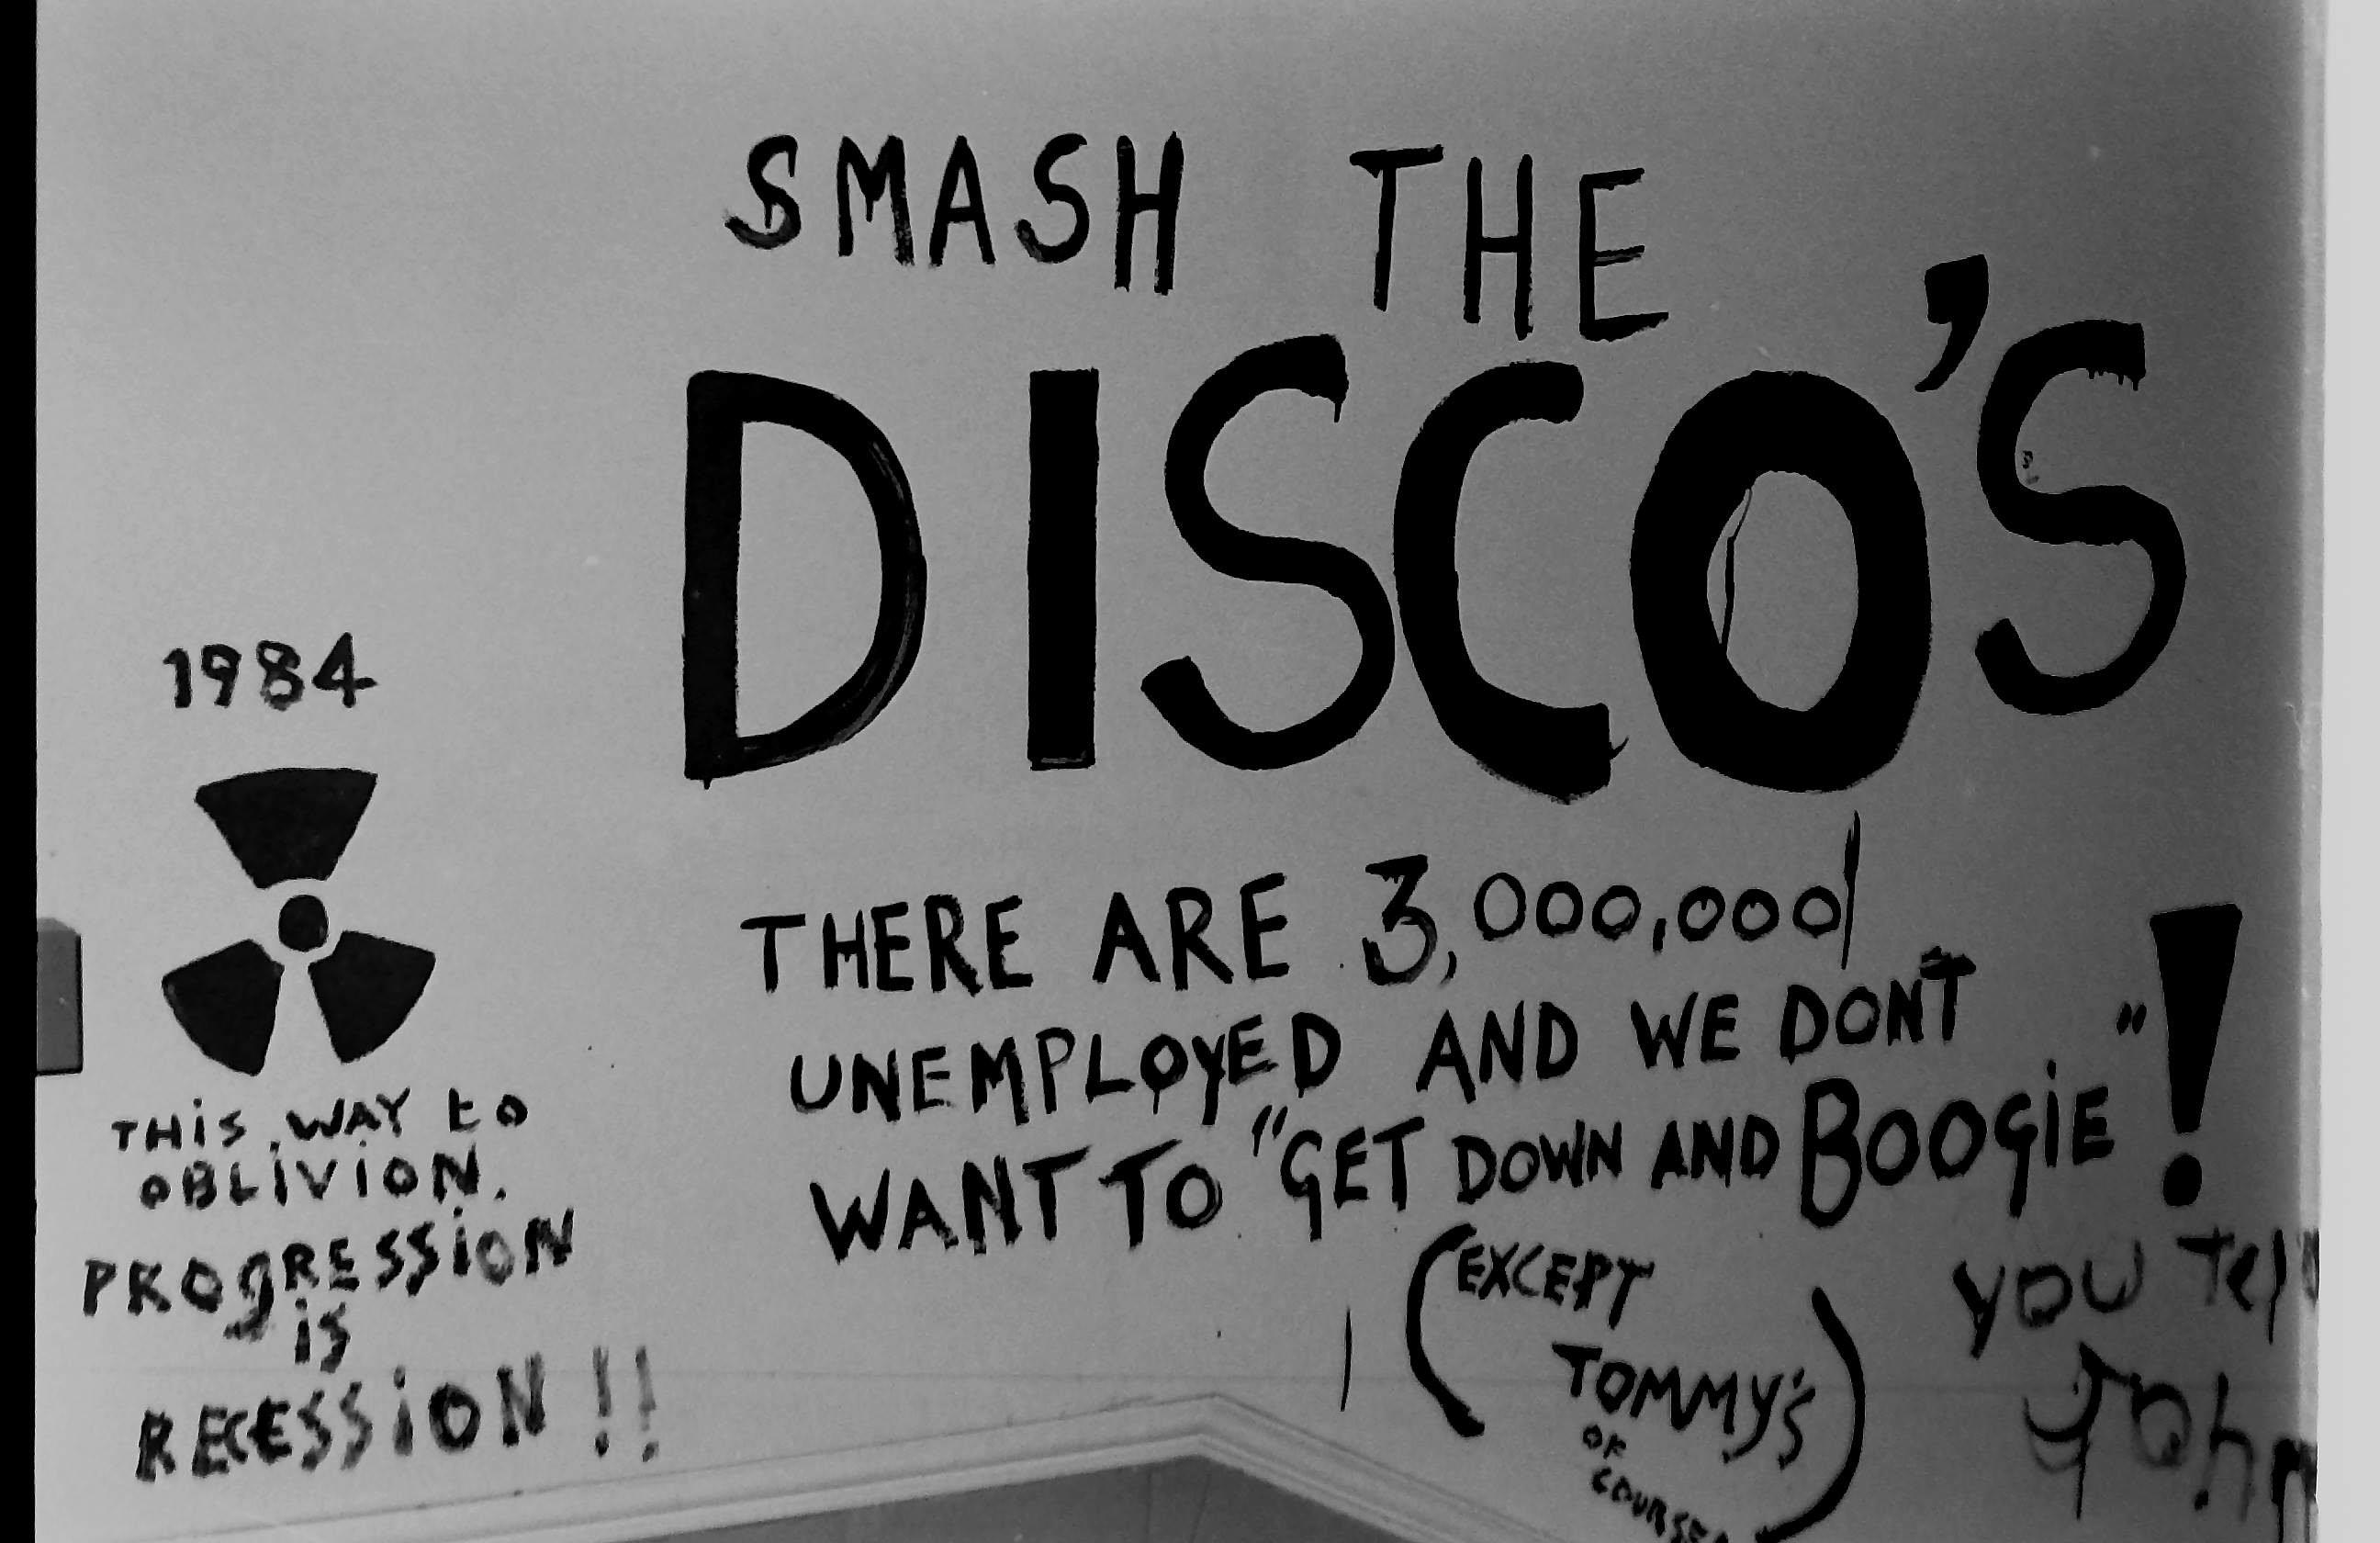 SMASH THE
DISCO'S
THERE ARE 3,000,000
UNEMPLOYED AND WE DONT
WANT TO "GET DOWN AND BOOGIE"!
(EXCEPT
TOMMY'S
OF
COURSE)
you Tell
John
1984
THiS WAY to
OBLiViON.
PROgRESSiON
iS
RECESSiON!!